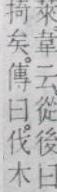 萊韋云從後曰
掎矣。傳曰伐木